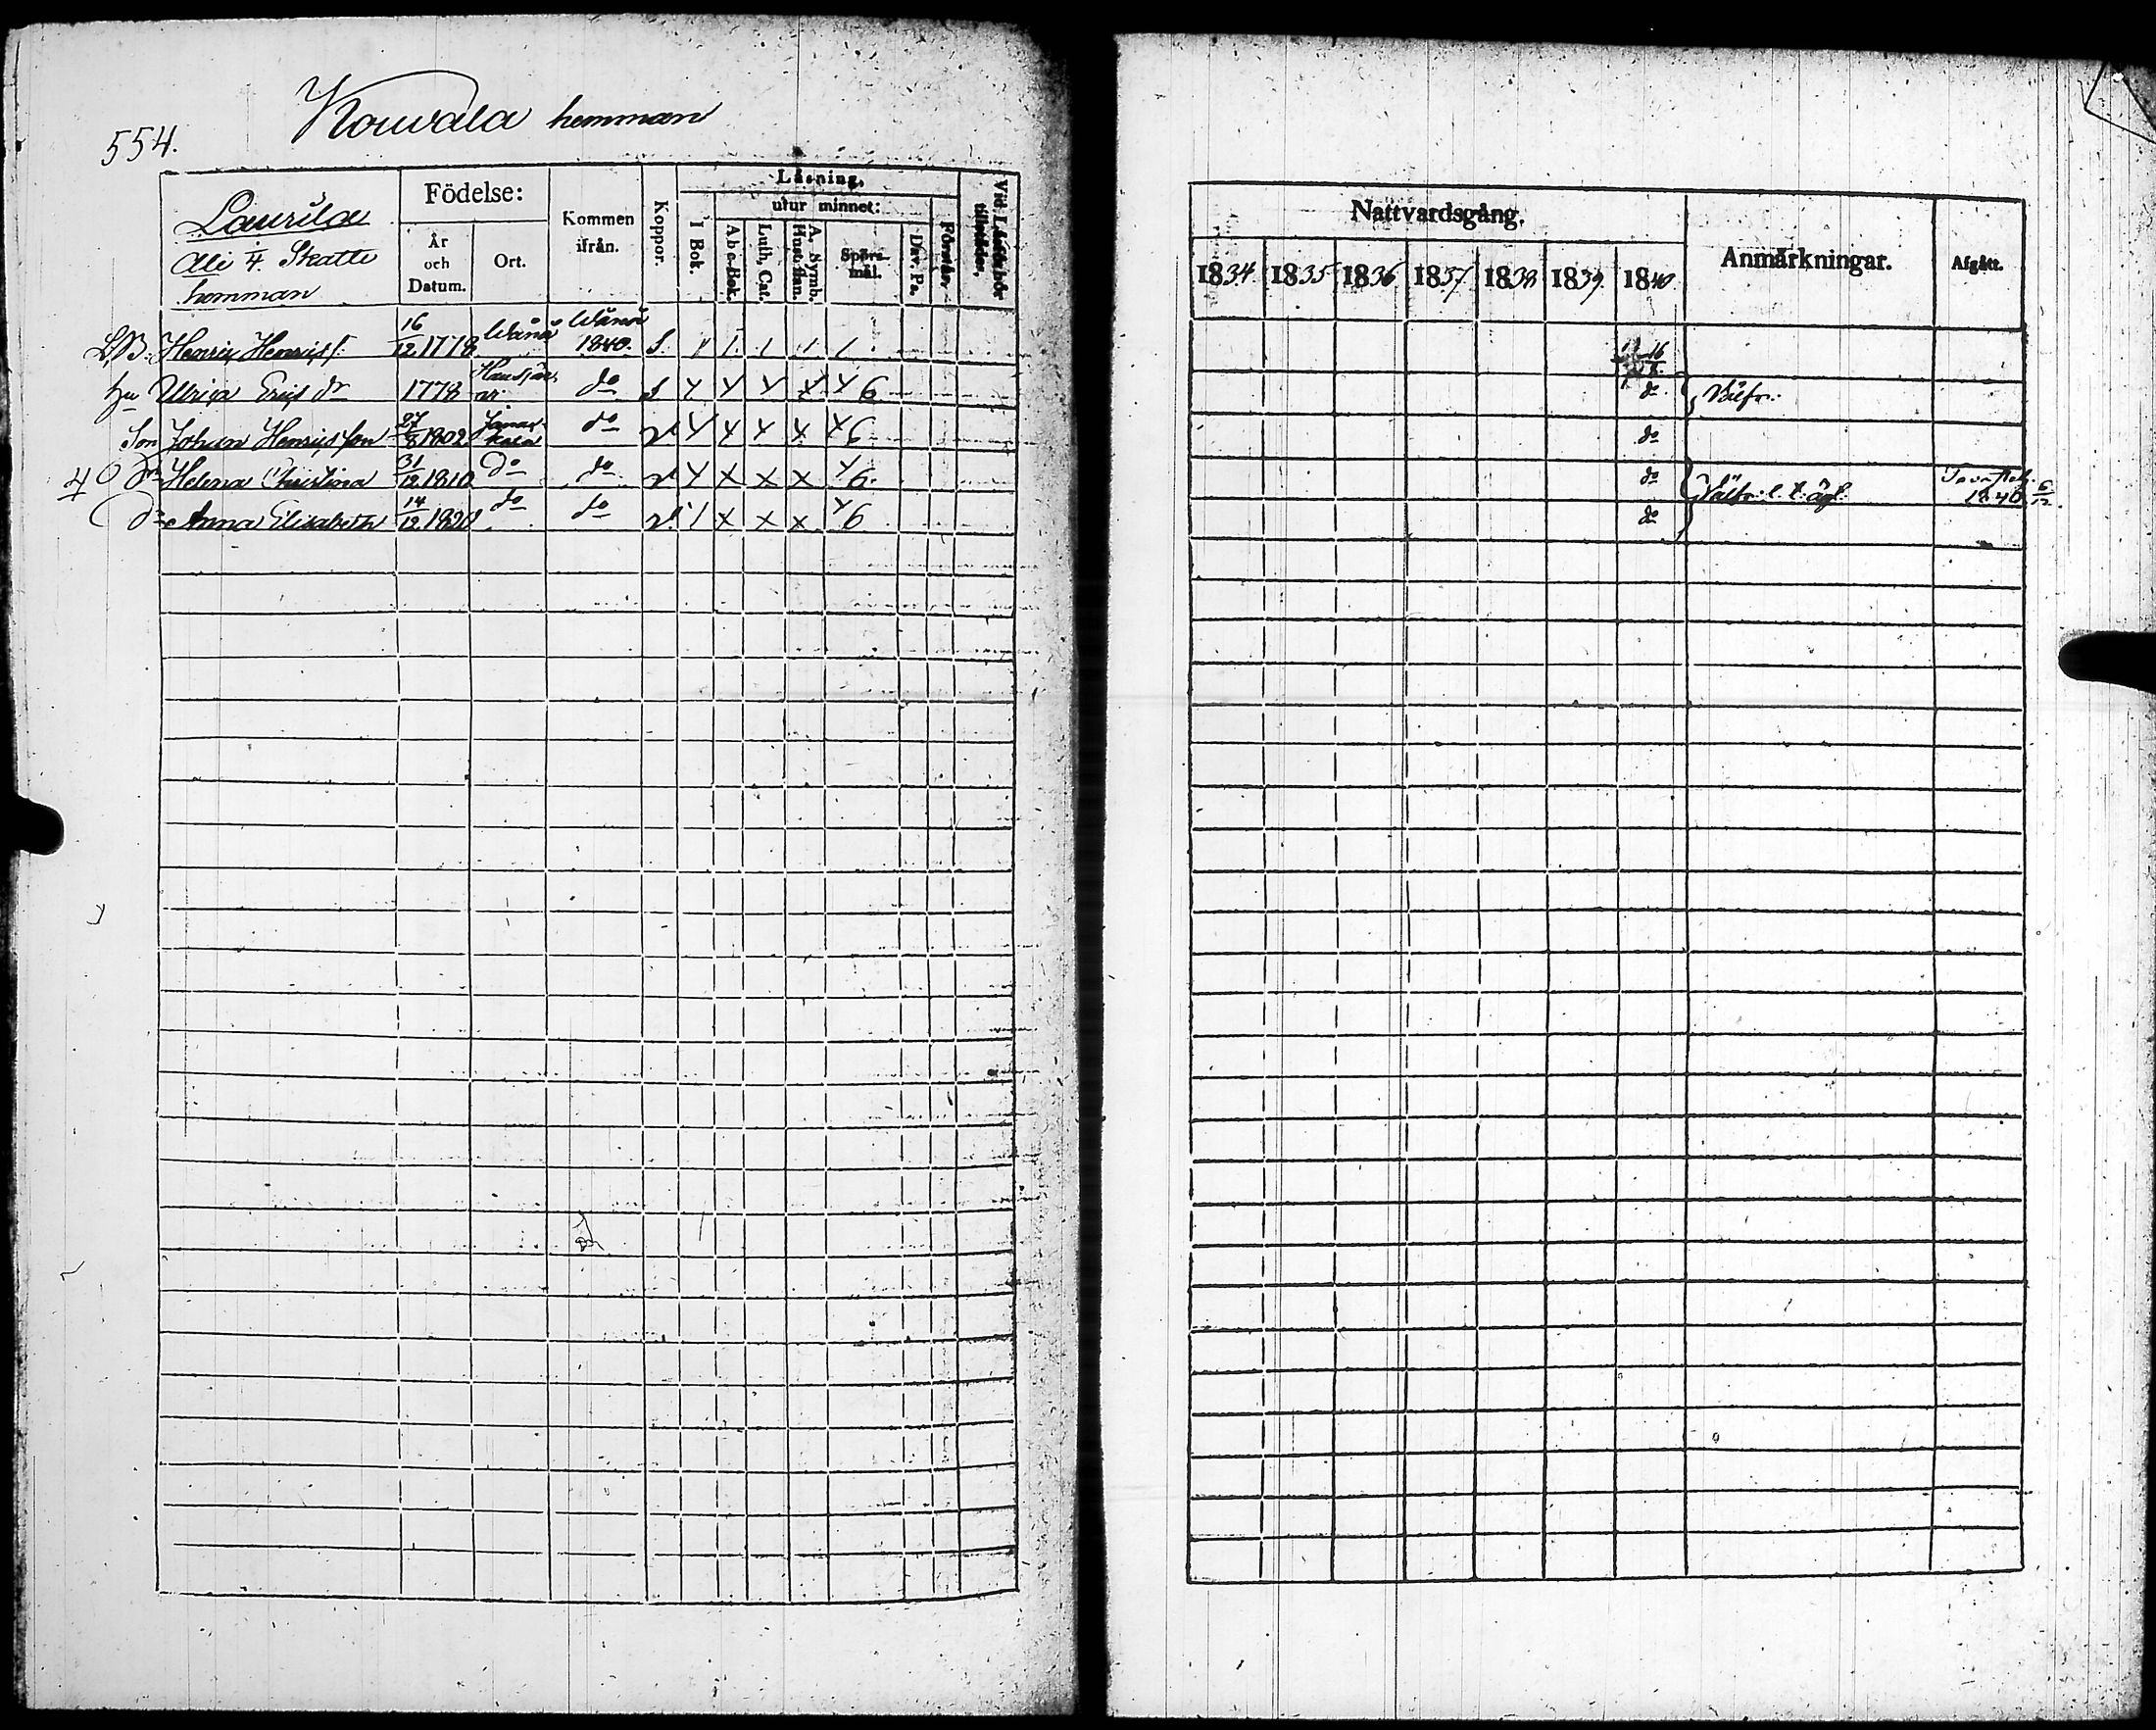 554.
Kouvala hemman
Laurila
ali 4. Skatte
hemman
Födelse:
År
och
Datum.
Ort.
Kommen
ifrån.
Koppor.
Läsning.
I Bok.
utur minnet:
A b c-Bok.
Luth. Cat.
A. Symb.
Hust. tfan.
Spörs-
mål.
Dav. Ps.
Förstår.
Vid Läsförhör
tillstädes.
Henric Henricss. 16/12 1778 Wånå Wånå 1840. S. 1 1 1 1 1
hu Ulrica Erics dr 1778 Hausjär-
vi do S 6
Son Johan Henricsson 27/8 1802 Janak-
kala do 6
dr Helena Christina 31/12 1810 do do x x x 6.
4
dr Anna Elisabeth 14/12 1820 do do x x x 6
Nattvardsgång.
1834 1835 1836 1837 1838 1839 1840
Anmärkningar.
Afgått.
16/8
do
do
do 1840 6/12
do